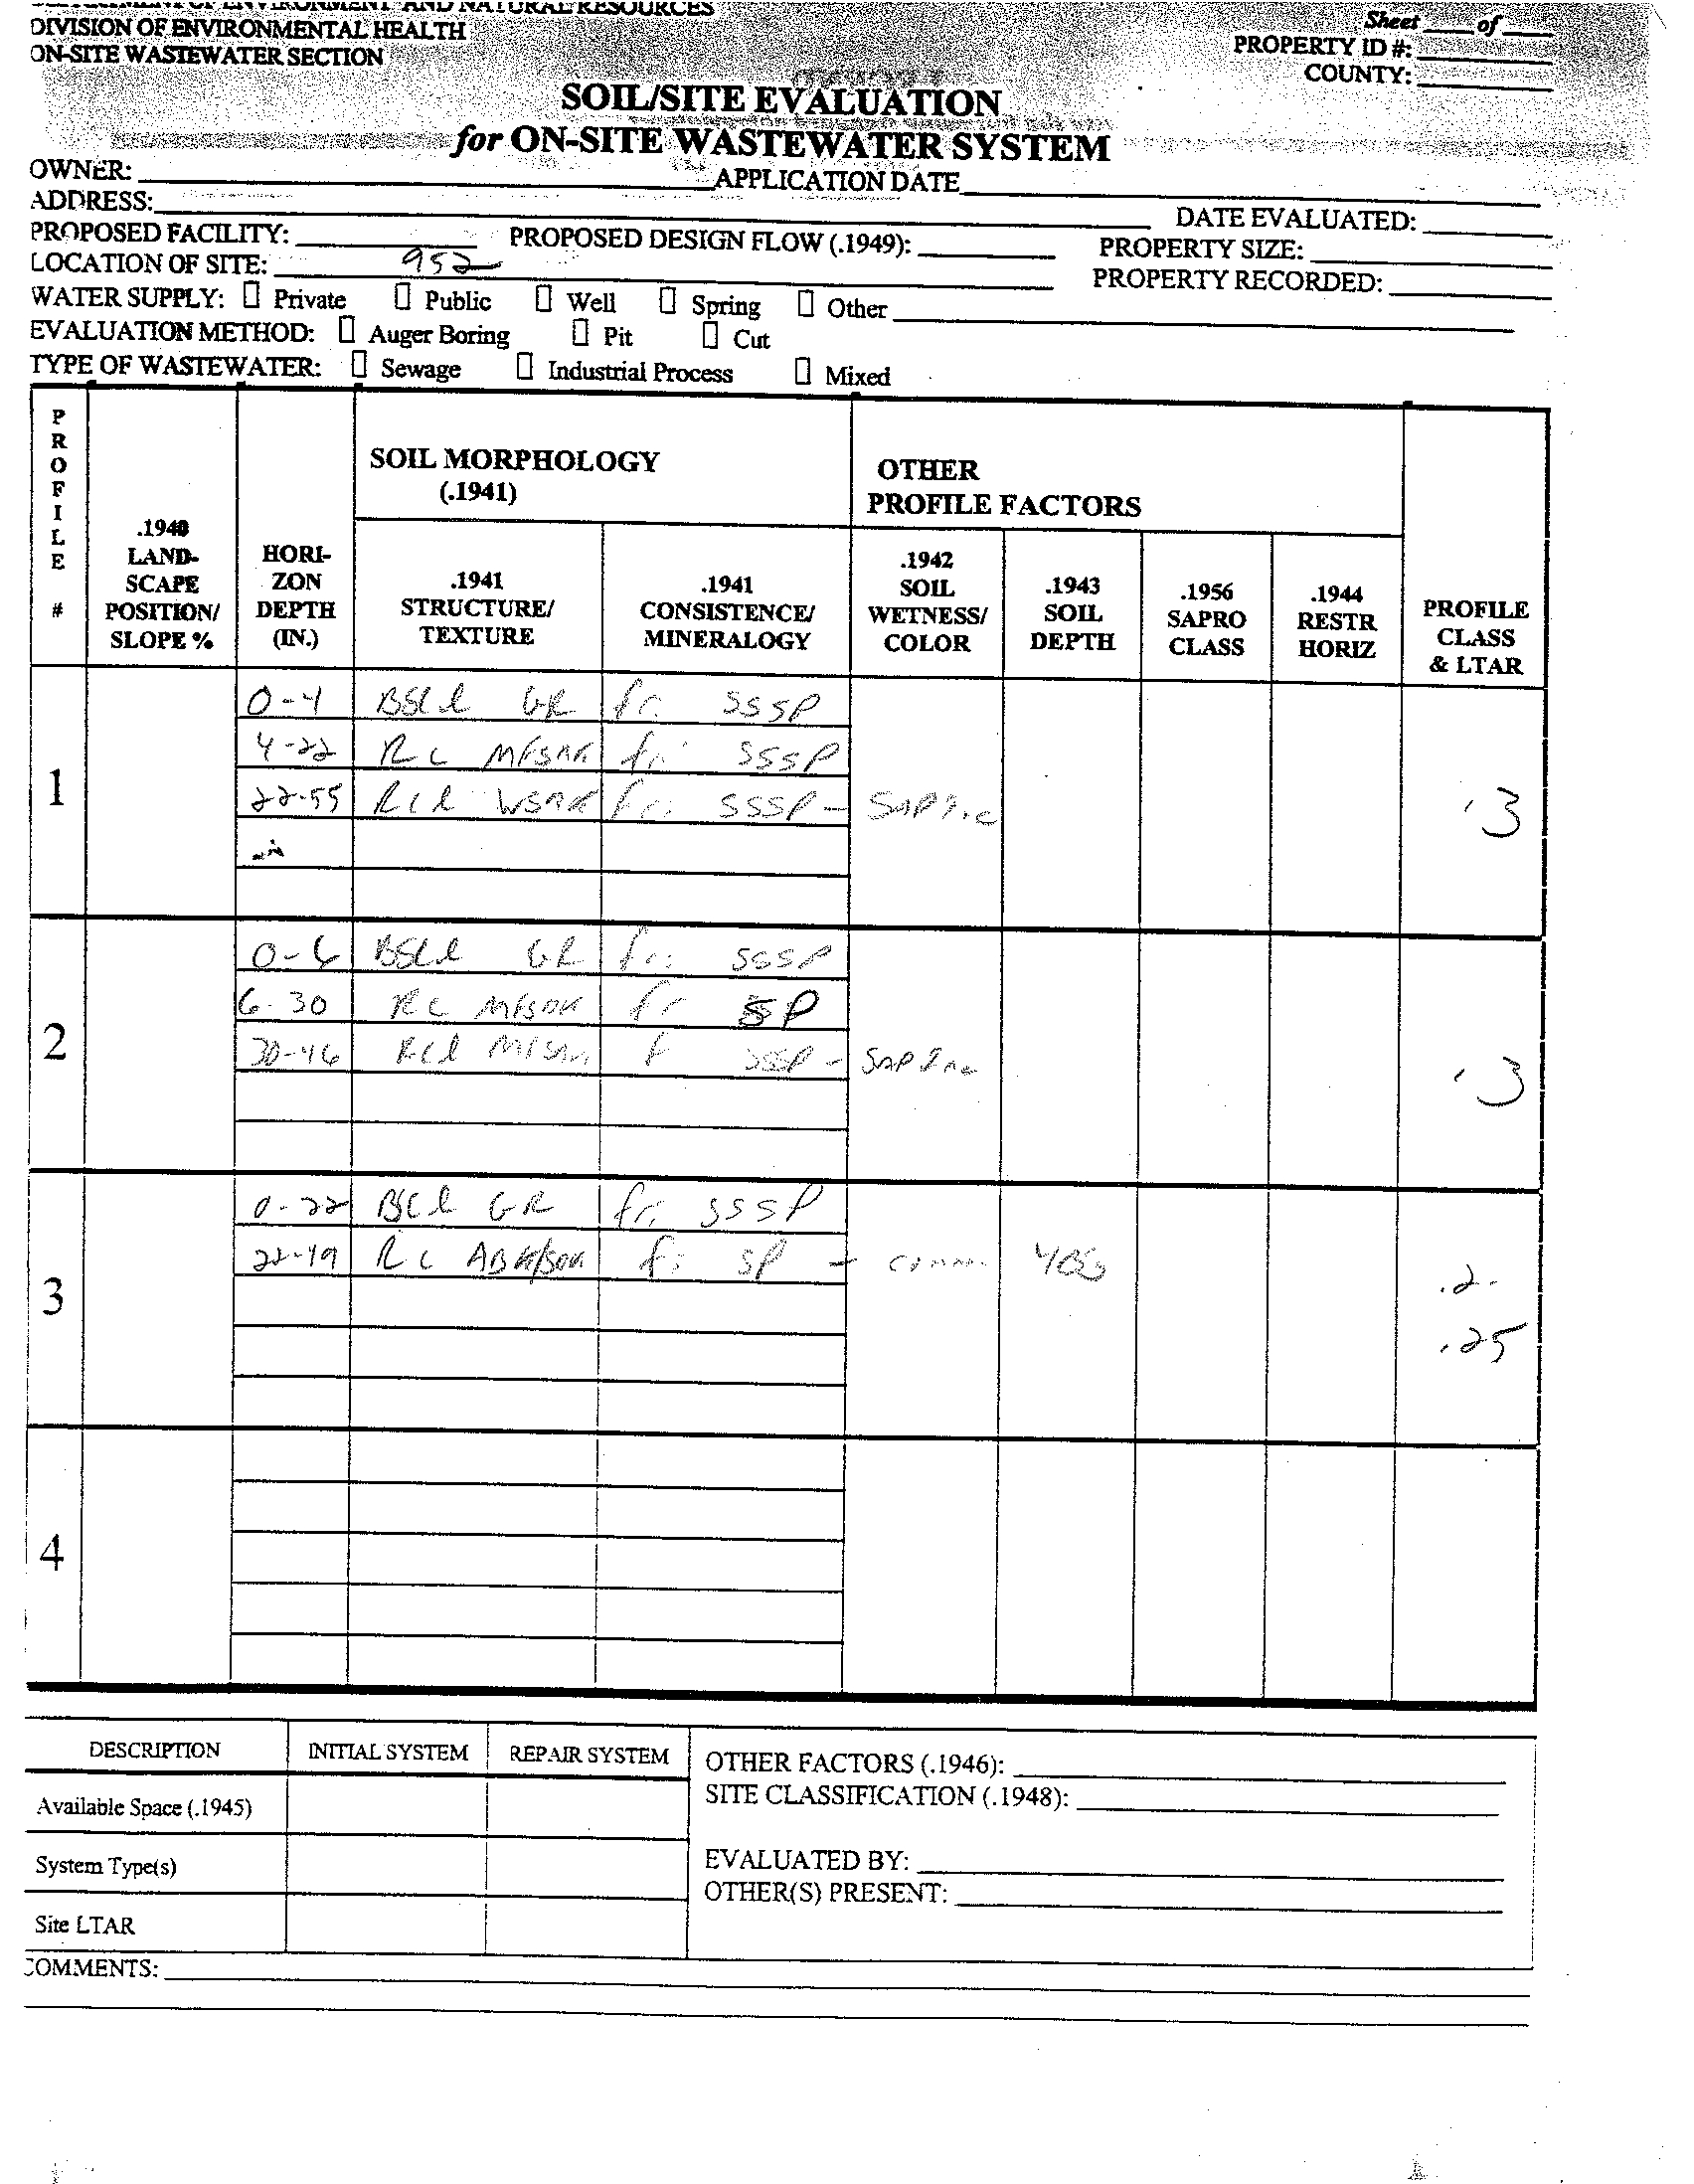 DEPARTMENT OF ENVIRONMENT AND NATURAL RESOURCES
DIVISION OF ENVIRONMENTAL HEALTH
ON-SITE WASTEWATER SECTION
Sheet ____ of ____
PROPERTY ID #:
COUNTY:
SOIL/SITE EVALUATION
for ON-SITE WASTEWATER SYSTEM
OWNER: APPLICATION DATE
ADDRESS: DATE EVALUATED:
PROPOSED FACILITY: PROPOSED DESIGN FLOW (.1949): PROPERTY SIZE:
LOCATION OF SITE: 952 PROPERTY RECORDED:
WATER SUPPLY: Private Public Well Spring Other
EVALUATION METHOD: Auger Boring Pit Cut
TYPE OF WASTEWATER: Sewage Industrial Process Mixed
PROFILE #
.1940 LAND-SCAPE POSITION/ SLOPE %
HORI-ZON DEPTH (IN.)
SOIL MORPHOLOGY (.1941)
.1941 STRUCTURE/ TEXTURE
.1941 CONSISTENCE/ MINERALOGY
OTHER PROFILE FACTORS
.1942 SOIL WETNESS/ COLOR
.1943 SOIL DEPTH
.1956 SAPRO CLASS
.1944 RESTR HORIZ
PROFILE CLASS & LTAR
1
0-4 BSCl GR fr. SSSP
4-22 RC fri SSSP
22-55 RCl WSBK fri SSSP -
.3
2
0-6 BSCl GR fri SSSP
6-30 RC fr SP
30-46 RCl SSSP - SAP Inc
.3
3
0-22 BSCl GR fri SSSP
22-49 RC ABK/SBK fi SP -
.2-
.25
4
DESCRIPTION INITIAL SYSTEM REPAIR SYSTEM
Available Space (.1945)
System Type(s)
Site LTAR
OTHER FACTORS (.1946):
SITE CLASSIFICATION (.1948):
EVALUATED BY:
OTHER(S) PRESENT:
COMMENTS: